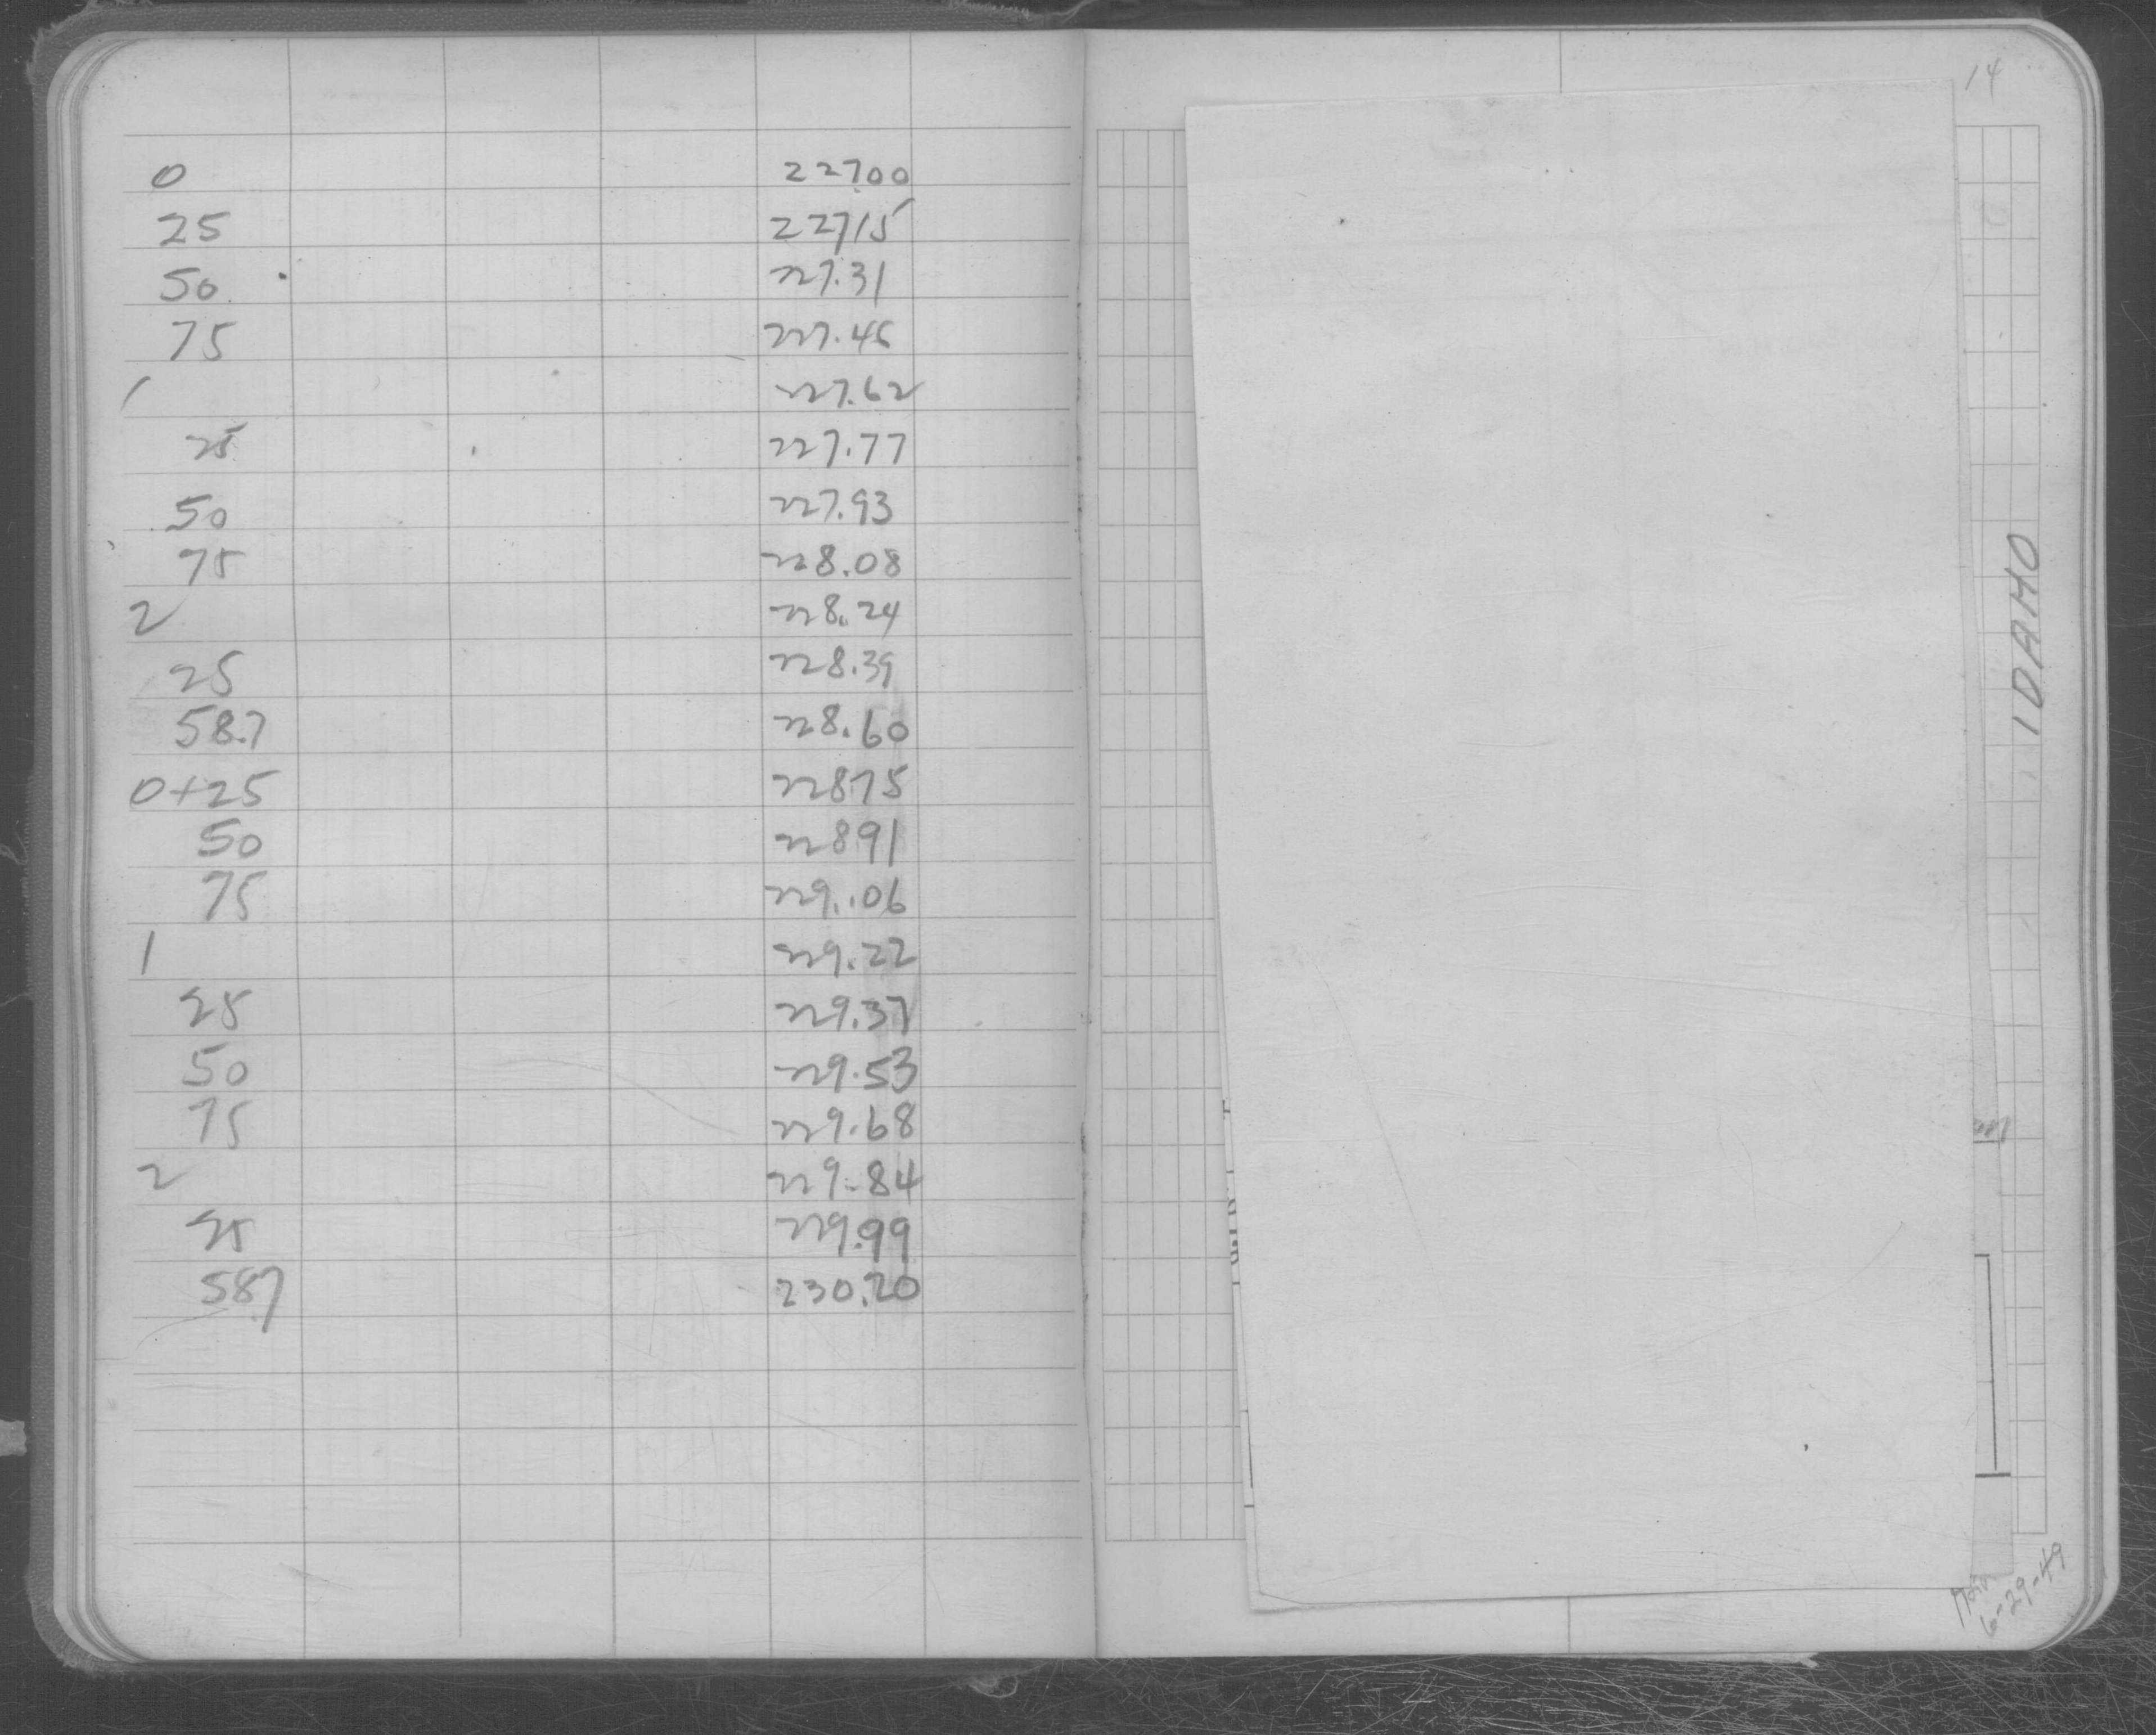 0 227.00
25 227.15
50 227.31
75 227.46
1 227.62
25 227.77
50 227.93
75 228.08
2 228.24
25 228.39
58.7 228.60
0+25 22875
50 22891
75 229.06
1 229.22
25 229.37
50 229.53
75 229.68
2 229.84
25 229.99
58.7 230.20
14
IDAHO
6-29-49